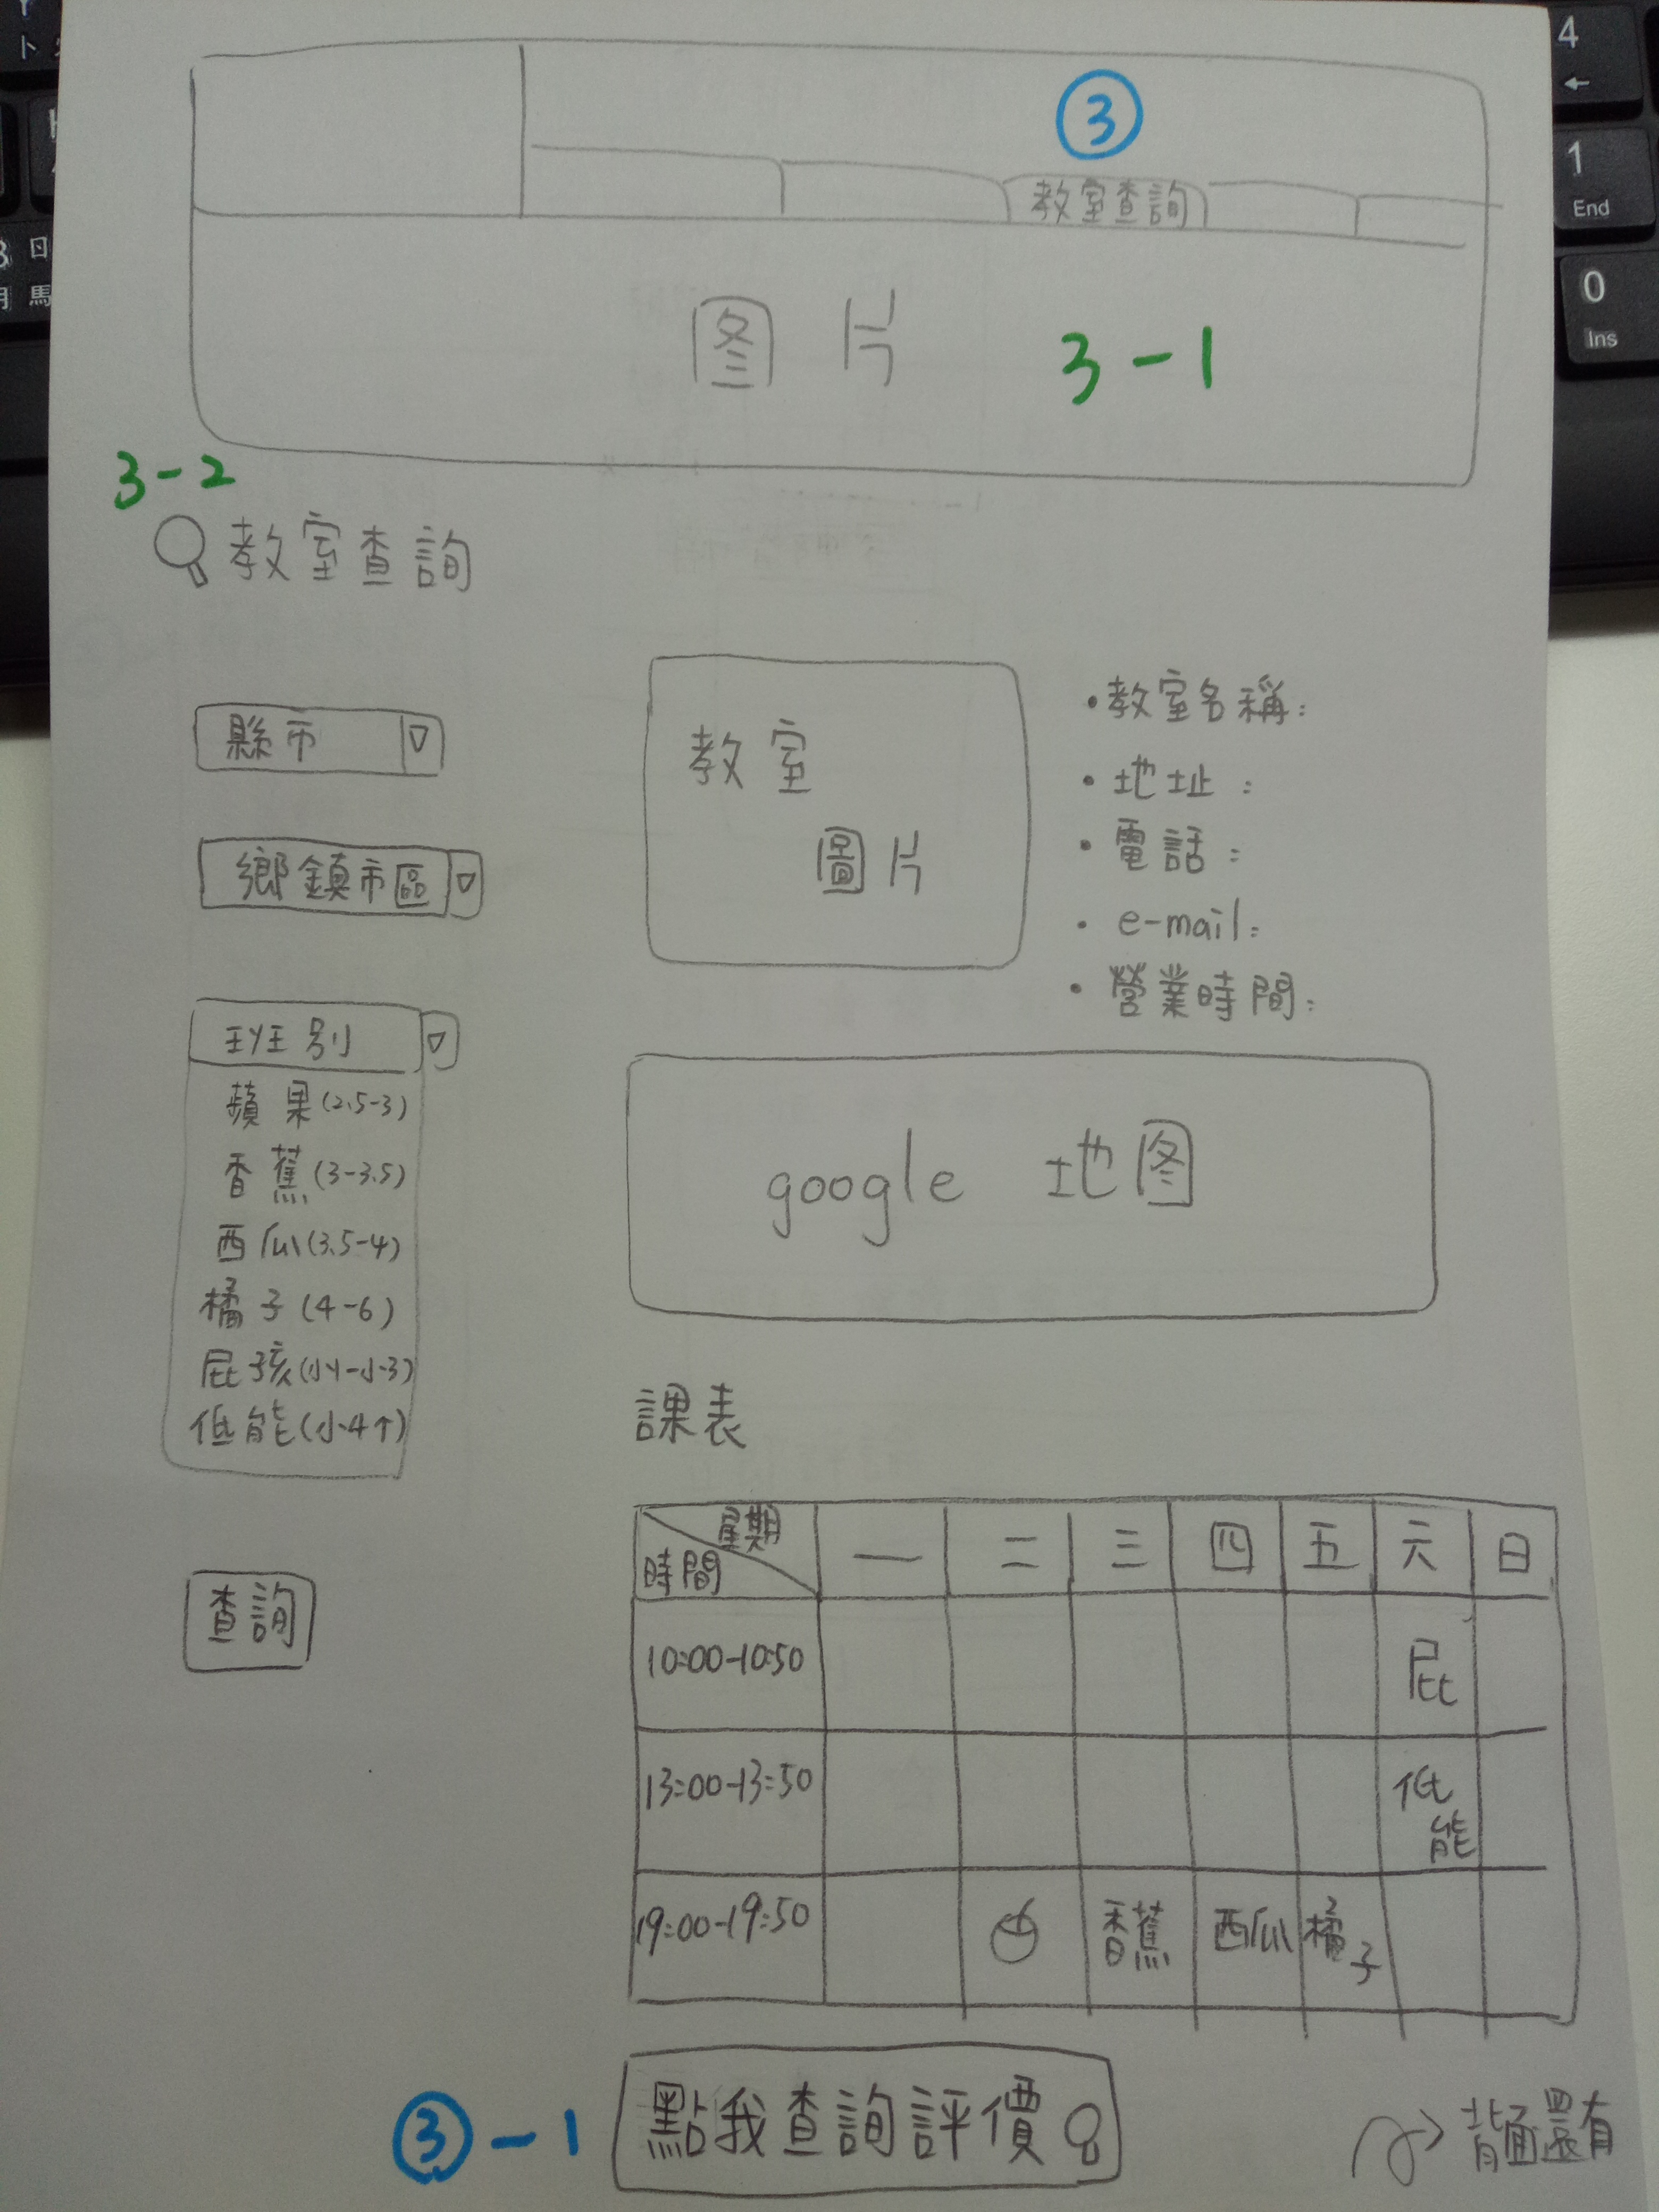 ③
教室查詢
图片 3-1
3-2
教室查詢
縣市
鄉鎮市區
班別
蘋果(2.5-3)
香蕉(3-3.5)
西瓜(3.5-4)
橘子(4-6)
屁孩(小1-小3)
低能(小4↑)
查詢
教室
圖片
•教室名稱:
•地址:
•電話:
•e-mail:
•營業時間:
google 地图
課表
星期 一 二 三 四 五 六 日
時間
10:00-10:50 屁
13:00-13:50 低能
19:00-19:50 香蕉 西瓜 橘子
③-1 點我查詢評價
背面還有
4
←
1
End
0
Ins